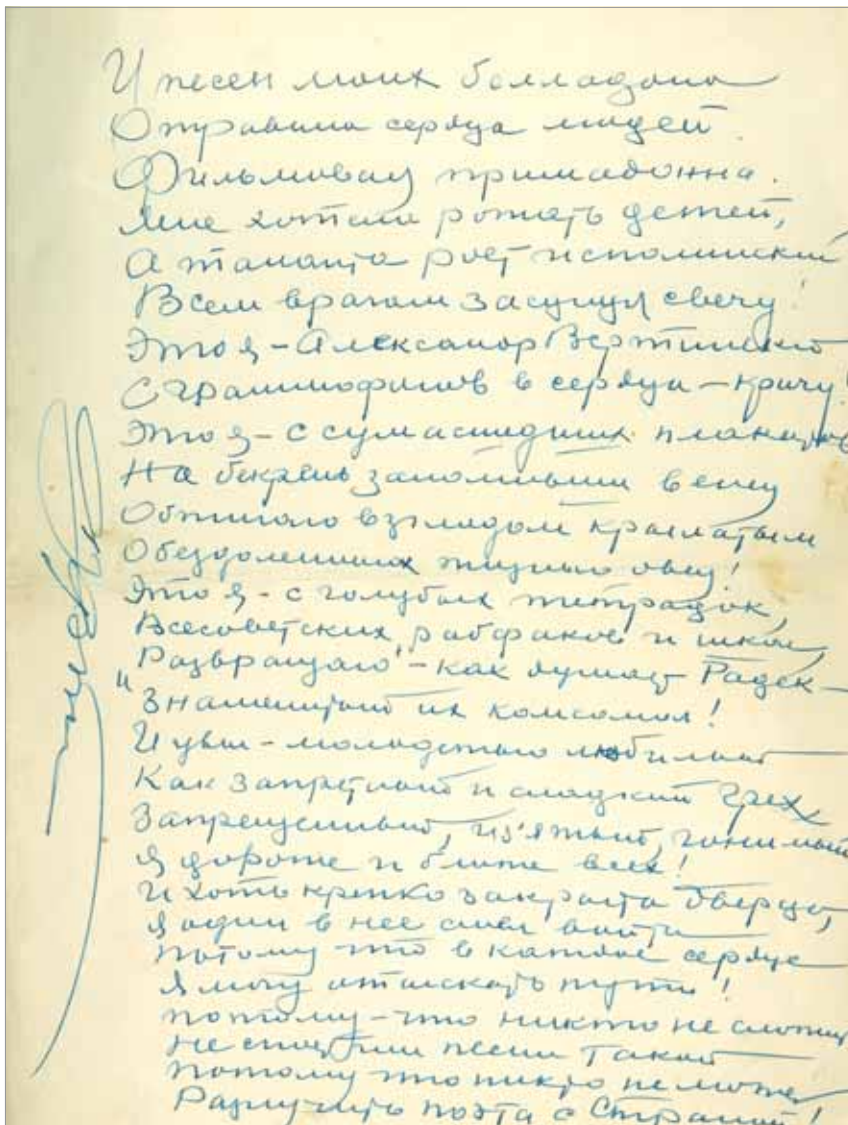 И песен моих белладонна
Отравила сердца людей.
Фильмовая примадонна.
Мне хотела рожать детей,
А таланта рост исполинский
Всем врагам засунул свечу!
Это я – Александр Вертинский
С граммофонов в сердца – кричу!
Это я – с сумасшедших плакатов
На бекрень заломивши венец
Обжигаю взглядом крылатым
Обездоленных жизнью овец!
Это я – с голубых тетрадок,
Всесоветских рабфаков и школ,
"Развращаю" – как думает Радек –
Знаменитый их комсомол!
И увы – молодостью любимый
Как запретный и сладкий грех
Запрещенный, из'ятый, гонимый
Я дороже и ближе всех!
И хоть крепко закрыта дверца,
Я один в нее смел войти
Потому что в каждое сердце
Я могу отыскать пути!
Потому – что никто не сложил
Не споет им песни такой
Потому что никто не может
Разлучить поэта с Страной!